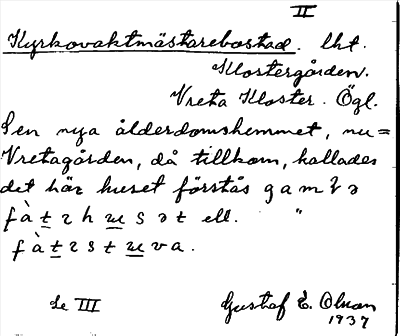 II
Kyrkovaktmästarebostad. lht.
Klostergården.
Vreta Kloster. Ögl.
Sen nya ålderdomshemmet, nu =
Vretagården, då tillkom, kallades
det här huset förstås
ell. "
Se III Gustaf E. Olson
1937